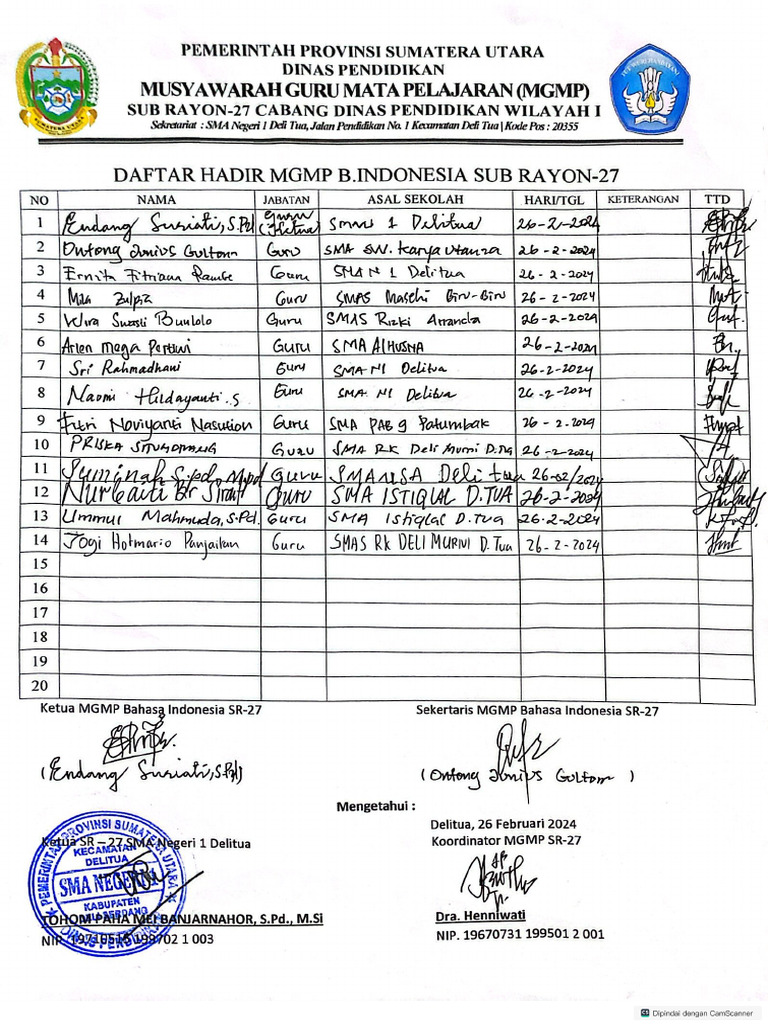 PEMERINTAH PROVINSI SUMATERA UTARA
DINAS PENDIDIKAN
MUSYAWARAH GURU MATA PELAJARAN (MGMP)
SUB RAYON-27 CABANG DINAS PENDIDIKAN WILAYAH I
Sekretariat : SMA Negeri 1 Deli Tua, Jalan Pendidikan No. 1 Kecamatan Deli Tua | Kode Pos : 20355
SUMATERA UTARA
TUT WURI HANDAYANI
DAFTAR HADIR MGMP B.INDONESIA SUB RAYON-27
NO NAMA JABATAN ASAL SEKOLAH HARI/TGL KETERANGAN TTD
1 Endang Susiati, S.Pd Guru (Ketua) SMAN 1 Delitua 26-2-2024
2 Ontong Junius Gultom Guru SMA SW. Karya Utama 26-2-2024
3 Ernita Fitriana Rambe Guru SMA N 1 Delitua 26-2-2024
4 Guru SMAS Masehi Biru-Biru 26-2-2024
5 Wira Suasti Buulolo Guru SMAS Rizki Ananda 26-2-2024
6 Arlen Mega Pertiwi Guru SMA ALHUSNA 26-2-2024
7 Sri Rahmadhani Guru SMA N1 Delitua 26-2-2024
8 Naomi Hildayanti.S Guru SMA N1 Delitua 26-2-2024
9 Fitri Noviyanti Nasution Guru SMA PAB 9 Patumbak 26-2-2024
10 PRISKA SITUMORANG Guru SMA RK Deli Murni D.Tua 26-2-2024
11 Juminah, S.pd, M.pd Guru SMANSA Delitua 26-02/2024
12 Nurbaiti Br Guru SMA ISTIQLAL D.TUA 26-2-2024
13 Ummul Mahmuda, S.Pd. Guru SMA Istiqlal D.Tua 26-2-2024
14 Jogi Hotmario Panjaitan Guru SMAS RK DELI MURNI D.Tua 26-2-2024
15
16
17
18
19
20
Ketua MGMP Bahasa Indonesia SR-27 Sekertaris MGMP Bahasa Indonesia SR-27
(Endang Susiati, S.Pd) (Ontong Junius Gultom)
Mengetahui :
Delitua, 26 Februari 2024
Ketua SR – 27 SMA Negeri 1 Delitua Koordinator MGMP SR-27
PEMERINTAH PROVINSI SUMATERA UTARA
KECAMATAN
DELITUA
SMA NEGERI 1
KABUPATEN
DELI SERDANG
DINAS PENDIDIKAN
TOHOM PAHA MEI BANJARNAHOR, S.Pd., M.Si Dra. Henniwati
NIP. 19710515 199702 1 003 NIP. 19670731 199501 2 001
Dipindai dengan CamScanner